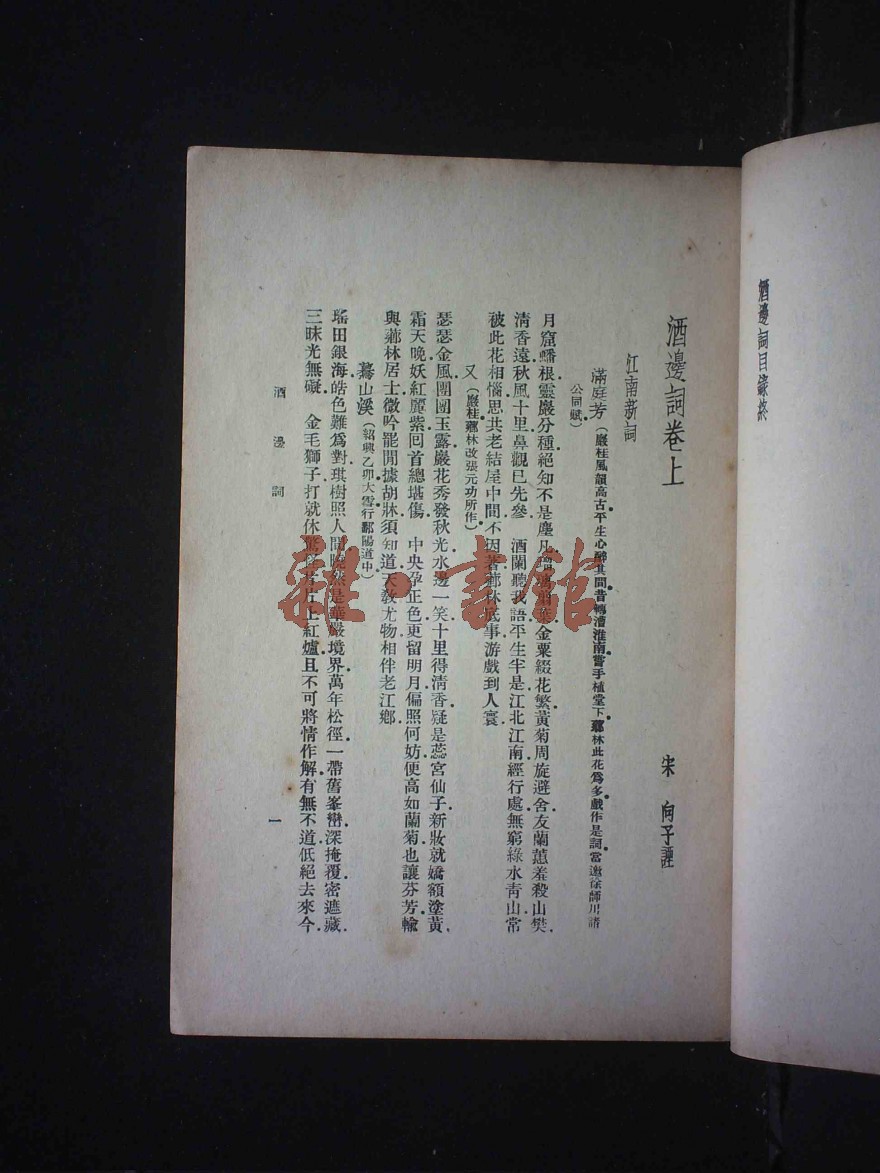 酒邊詞目錄終
酒邊詞卷上
宋 向子諲
江南新詞
滿庭芳(巖桂風韻高古平生心醉其間昔轉漕淮南嘗手植堂下薌林此花爲多戲作是詞當邀徐師川諸
公同賦)
月窟蟠根靈巖分種絕知不是塵凡 葉金粟綴花繁黃菊周旋避舍友蘭蕙羞殺山礬
淸香遠秋風十里鼻觀已先參 酒闌聽我語平生半是江北江南經行處無窮綠水靑山常
被此花相惱思共老結屋中間不因著薌林底事游戲到人寰
又(巖桂薌林改張元功所作)
瑟瑟金風團團玉露巖花秀發秋光水邊一笑十里得淸香疑是蕊宮仙子新妝就嬌額塗黃
霜天晚妖紅麗紫回首總堪傷 中央孕正色更留明月偏照何妨便高如蘭菊也讓芬芳輸
與薌林居士微吟罷閒據胡牀須知道天敎尤物相伴老江鄕
驀山溪(紹興乙卯大雪行鄱陽道中)
瑤田銀海皓色難爲對琪樹照人間曉然是華嚴境界萬年松徑一帶舊峯巒深掩覆密遮藏
三昧光無礙 金毛獅子打就休驚 上紅爐且不可將情作解有無不道低絕去來今
酒邊詞
一
雜·書館